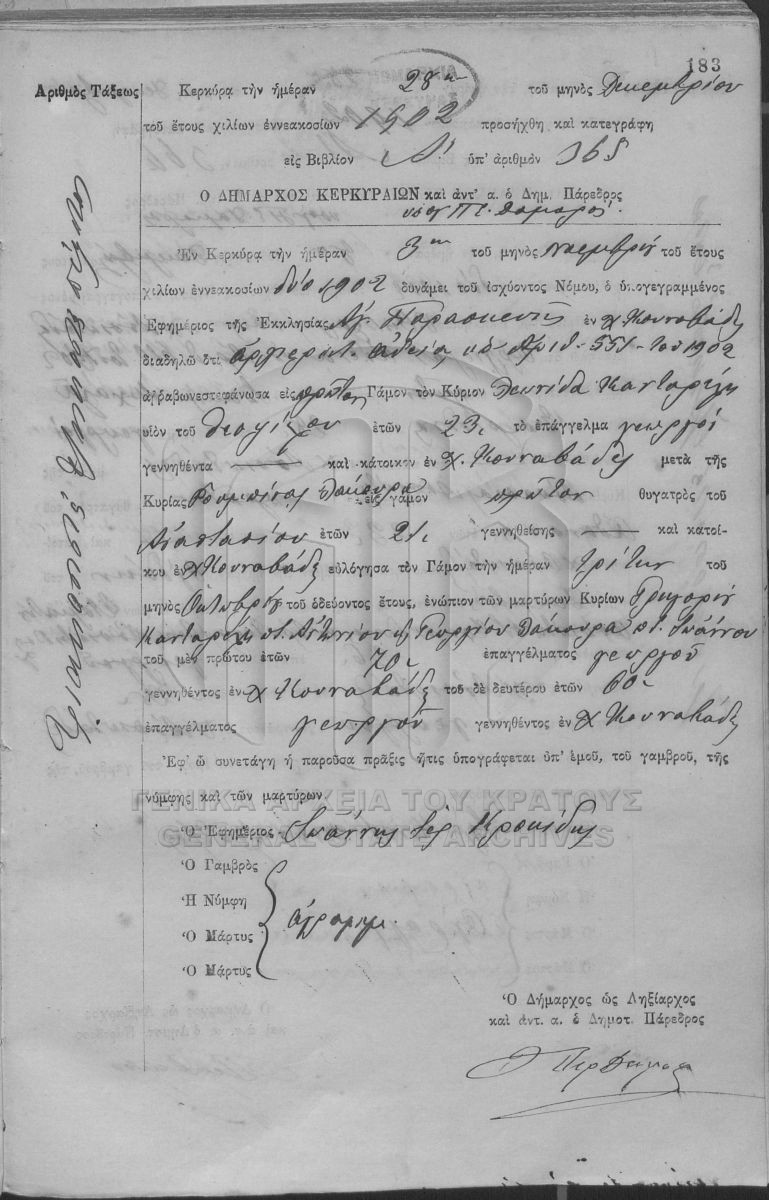 183
Ἀριθμὸς Τάξεως
Κερκύρᾳ τὴν ἡμέραν 28ην τοῦ μηνὸς Δεκεμβρίου
τοῦ ἔτους χιλίων ἐννεακοσίων 1902 προσήχθη καὶ κατεγράφη
εἰς Βιβλίον Α' ὑπ' ἀριθμὸν 365
Ο ΔΗΜΑΡΧΟΣ ΚΕΡΚΥΡΑΙΩΝ καὶ ἀντ' α. ὁ Δημ. Πάρεδρος
Ἐν Κερκύρᾳ τὴν ἡμέραν 3ην τοῦ μηνὸς Νοεμβρίου τοῦ ἔτους
χιλίων ἐννεακοσίων δύο 1902 δυνάμει τοῦ ἰσχύοντος Νόμου, ὁ ὑπογεγραμμένος
Ἐφημέριος τῆς Ἐκκλησίας Ἁγ. Παρασκευῆς ἐν χ. Κουναβάδες
διαδηλῶ ὅτι ἀρχιερατ. ἀδείᾳ ὑπ' Ἀριθ. 551 του 1902
ἀρραβωνεστεφάνωσα εἰς πρῶτον Γάμον τὸν Κύριον Λεωνίδα Κανταρέλη
υἱὸν τοῦ Θεοφίλου ἐτῶν 23 τὸ ἐπάγγελμα γεωργοῦ
γεννηθέντα καὶ κάτοικον ἐν χ. Κουναβάδες μετὰ τῆς
Κυρίας Κουμπίνας Δάκουρα εἰς γάμον πρῶτον θυγατρὸς τοῦ
Ἀναστασίου ἐτῶν 21 γεννηθείσης καὶ κατοί-
κου ἐν χ Κουναβάδες εὐλόγησα τὸν Γάμον τὴν ἡμέραν Τρίτην τοῦ
μηνὸς Ὀκτωβρίου τοῦ ὁδεύοντος ἔτους, ἐνώπιον τῶν μαρτύρων Κυρίων Γρηγορίου
Κανταρέλη π. Ἀντωνίου κ Γεωργίου Δάκουρα π. Ἰωάννου
τοῦ μὲν πρώτου ἐτῶν 70 ἐπαγγέλματος γεωργοῦ
γεννηθέντος ἐν χ Κουναβάδες τοῦ δὲ δευτέρου ἐτῶν 60
ἐπαγγέλματος γεωργοῦ γεννηθέντος ἐν χ Κουναβάδες
Ἐφ' ᾧ συνετάγη ἡ παροῦσα πρᾶξις ἥτις ὑπογράφεται ὑπ' ἐμοῦ, τοῦ γαμβροῦ, τῆς
νύμφης καὶ τῶν μαρτύρων.
ΓΕΝΙΚΑ ΑΡΧΕΙΑ ΤΟΥ ΚΡΑΤΟΥΣ
GENERAL STATE ARCHIVES
Ὁ Ἐφημέριος Ἰωάννης Ἱερ. Κροκίδης
Ὁ Γαμβρὸς
Ἡ Νύμφη
ἀγράμμ.
Ὁ Μάρτυς
Ὁ Μάρτυς
Ὁ Δήμαρχος ὡς Ληξίαρχος
καὶ ἀντ. α. ὁ Δημοτ. Πάρεδρος